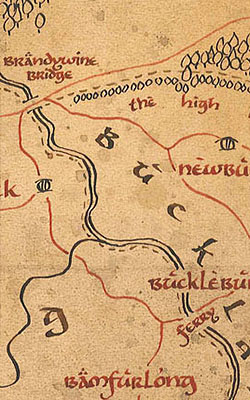 Brandywine
Bridge
the high
Buckl
newbu
k
bucklebu
ferry
g
Bamfurlong